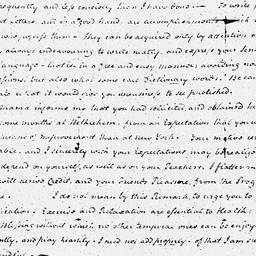 frequently, and less concisely than I have done. — To write
and Letters, and in a good hand, are accomplishments which
who possess them — they can be acquired only by attention
always endeavouring to write neatly, and express your Sen
Language — but in a free and easy manner, avoiding
but also what some call Dictionary words. Be
what it would give you uneasiness to see published.
mama informs me that you had solicited, and obtained
some months at Bethlehem, from an Expectation that you
means of Improvement than at New York. Your motive
and I sincerely wish your Expectations may be realiz
depend on yourself, as well as on your Teachers. I flatter
will derive Credit, and your Friends Pleasure, from the Prog
I do not mean by this Remark to urge you to
Exercise and Relaxation are essential to Health;
Blessing without which no other temporal ones can be enjoy
and play heartily. I need not add properly, of that I am